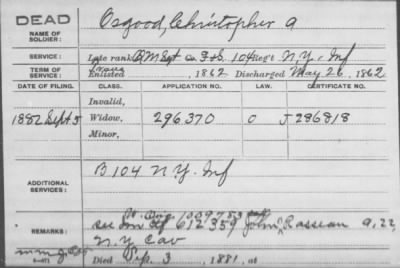 DEAD
NAME OF SOLDIER:
Osgood, Christopher A
SERVICE:
Late rank Q M Sgt Co. F & S. 104 Reg't N.Y. Inf
TERM OF SERVICE:
Enlisted , 1862 Discharged May 26, 1862
DATE OF FILING. CLASS. APPLICATION NO. LAW. CERTIFICATE NO.
Invalid,
1882 Sept 5 Widow, 296370 O J 286818
Minor,
ADDITIONAL SERVICES:
B 104 N.Y. Inf
1009783
REMARKS:
see 612359 John Rasseau 9, 22,
N.Y Cav
Died Sep. 3, 1881, at